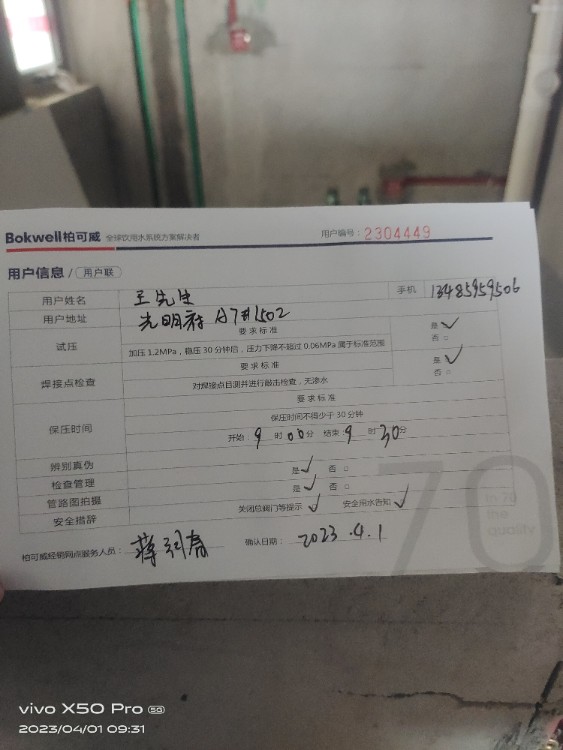 Bokwell柏可威 全球饮用水系统方案解决者 用户编号：2304449
用户信息 / 用户联
用户姓名 王先生 手机 13485959506
用户地址 光明府 A7#1502
试压 要求标准 是 ✓
加压 1.2MPa，稳压 30 分钟后，压力下降不超过 0.06MPa 属于标准范围 否 □
焊接点检查 要求标准 是 ✓
对焊接点目测并进行敲击检查，无渗水 否 □
保压时间 要求标准
保压时间不得少于 30 分钟
开始：9 时 00 分 结束：9 时 30 分
辨别真伪 是 ✓ 否 □
检查管理 是 ✓ 否 □
管路图拍摄 关闭总阀门等提示 ✓ 安全用水告知 ✓
安全措辞
柏可威经销网点服务人员： 确认日期： 2023.4.1
70
time
quality
vivo X50 Pro 5G
2023/04/01 09:31